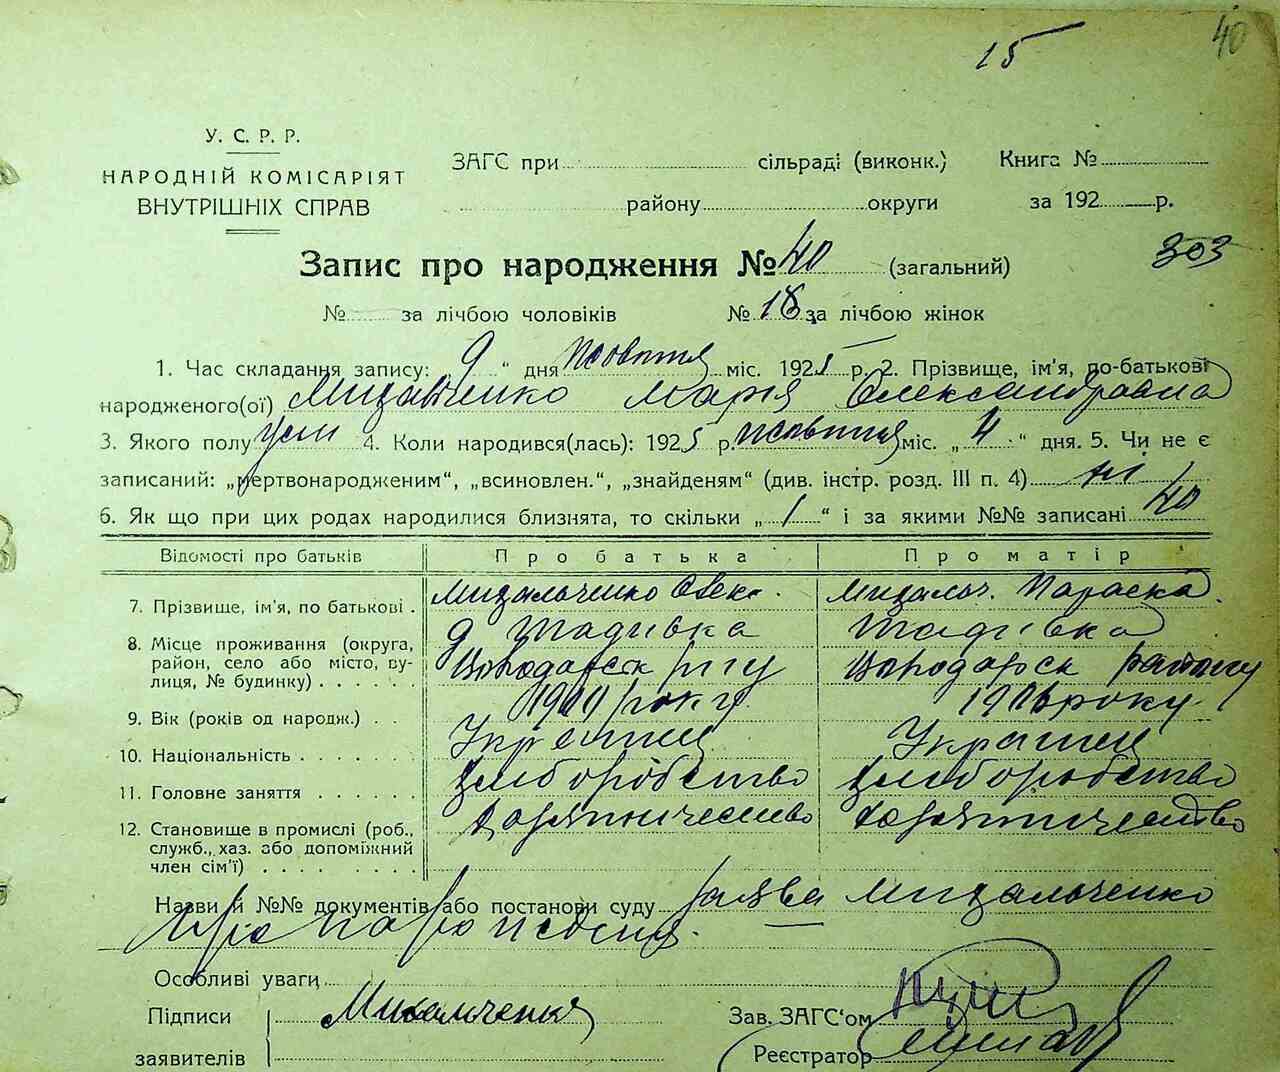 40
15
У. С. Р. Р.
НАРОДНІЙ КОМІСАРІЯТ
ВНУТРІШНІХ СПРАВ
ЗАГС при сільраді (виконк.) Книга №
району округи за 192 р.
303
Запис про народження № 40 (загальний)
№ за лічбою чоловіків № 18 за лічбою жінок
1. Час складання запису: „ 9 “ дня жовтня міс. 1925 р. 2. Прізвище, ім'я, по-батькові
народженого(ої) Михальченко Марія Олександравна
3. Якого полу 4. Коли народився(лась): 1925 р. жовтня міс. „ 4 “ дня. 5. Чи не є
записаний: „мертвонародженим“, „всиновлен.“, „знайденям“ (див. інстр. розд. III п. 4) ні
6. Як що при цих родах народилися близнята, то скільки „ 1 “ і за якими №№ записані 40
Відомості про батьків Про батька Про матір
7. Прізвище, ім'я, по батькові . Михальченко Олекс. Михальч. Параска
8. Місце проживання (округа,
район, село або місто, ву-
лиця, № будинку) . . . . . .
9. Вік (років од народж.) . . року 1906 року
10. Національність . . . . . . . Україн Україн
11. Головне заняття . . . . . . Хліборобство Хліборобство
12. Становище в промислі (роб.,
служб., хаз. або допоміжний
член сім'ї) . . . . . . . .
Назви й №№ документів або постанови суду заява Михальченко
про народження.
Особливі уваги
Підписи Михальченко Зав. ЗАГС'ом
заявителів Реєстратор